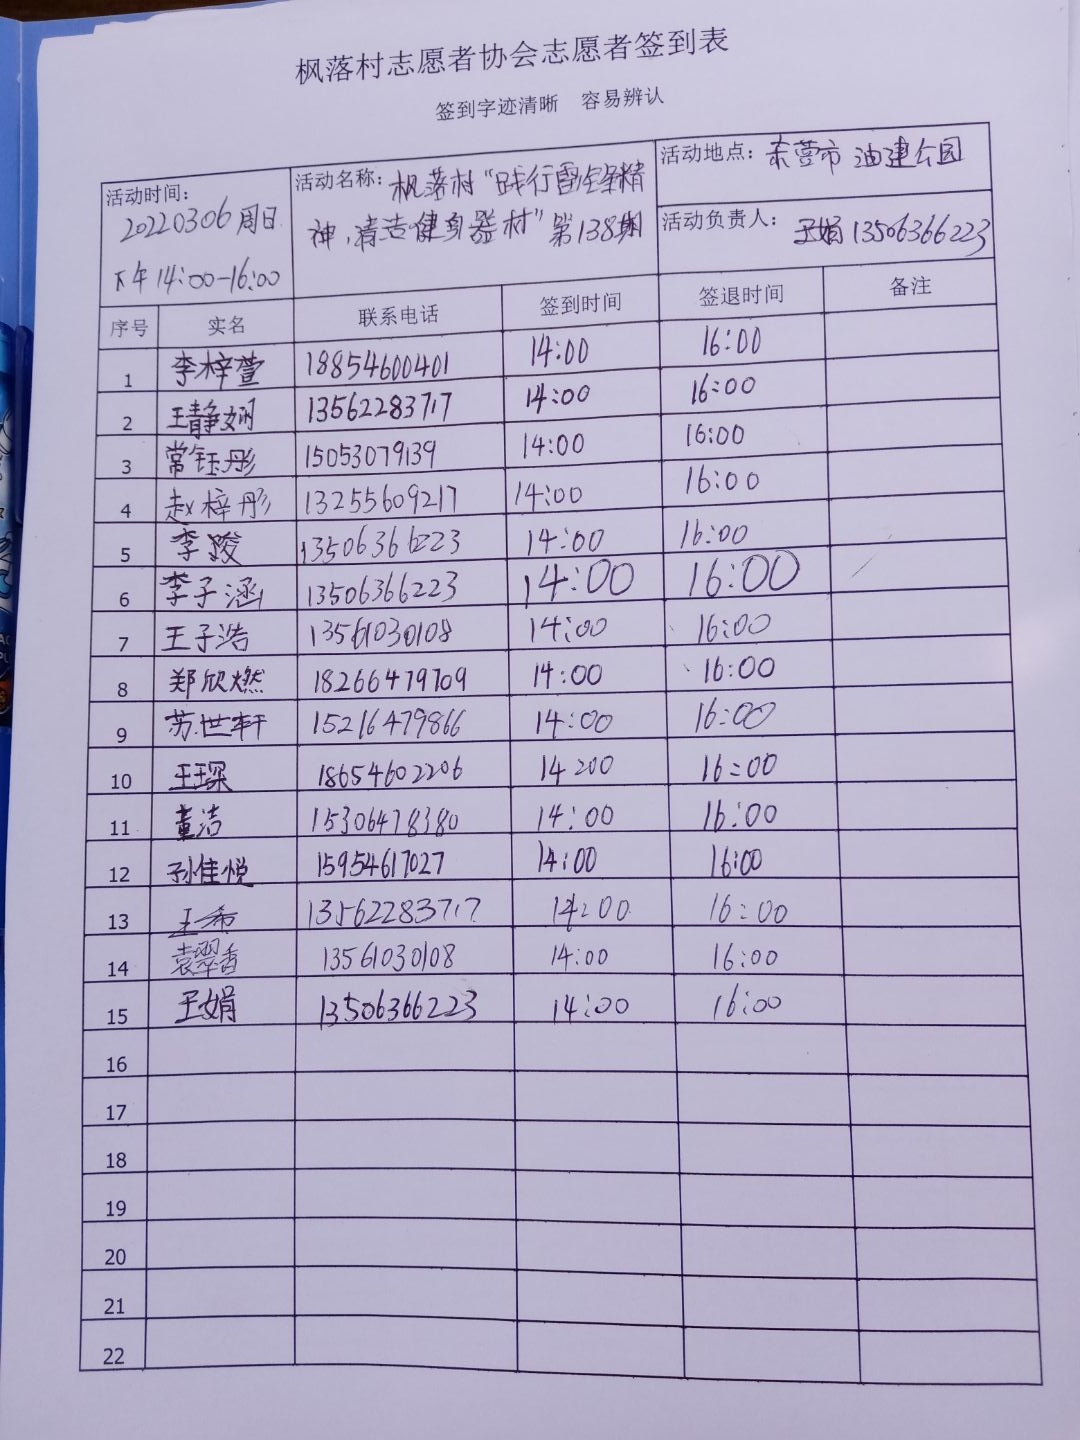 枫落村志愿者协会志愿者签到表
签到字迹清晰 容易辨认
活动时间：
20220306周日
下午14:00-16:00
活动名称：枫落村“践行雷锋精
神，清洁健身器材”第138期
活动地点：东营市 油建公园
活动负责人：王娟13506366223
序号 实名 联系电话 签到时间 签退时间 备注
1 李梓萱 18854600401 14:00 16:00
2 王静娴 13562283717 14:00 16:00
3 常钰彤 15053079139 14:00 16:00
4 赵梓彤 13255609217 14:00 16:00
5 李骏 13506366223 14:00 16:00
6 李子涵 13506366223 14:00 16:00
7 王子浩 13561030108 14:00 16:00
8 郑欣燃 18266479709 14:00 16:00
9 苏世轩 15216479866 14:00 16:00
10 王琛 18654602206 14:00 16:00
11 董洁 15306478380 14:00 16:00
12 孙佳悦 15954617027 14:00 16:00
13 王希 13562283717 14:00 16:00
14 袁翠香 13561030108 14:00 16:00
15 王娟 13506366223 14:00 16:00
16
17
18
19
20
21
22